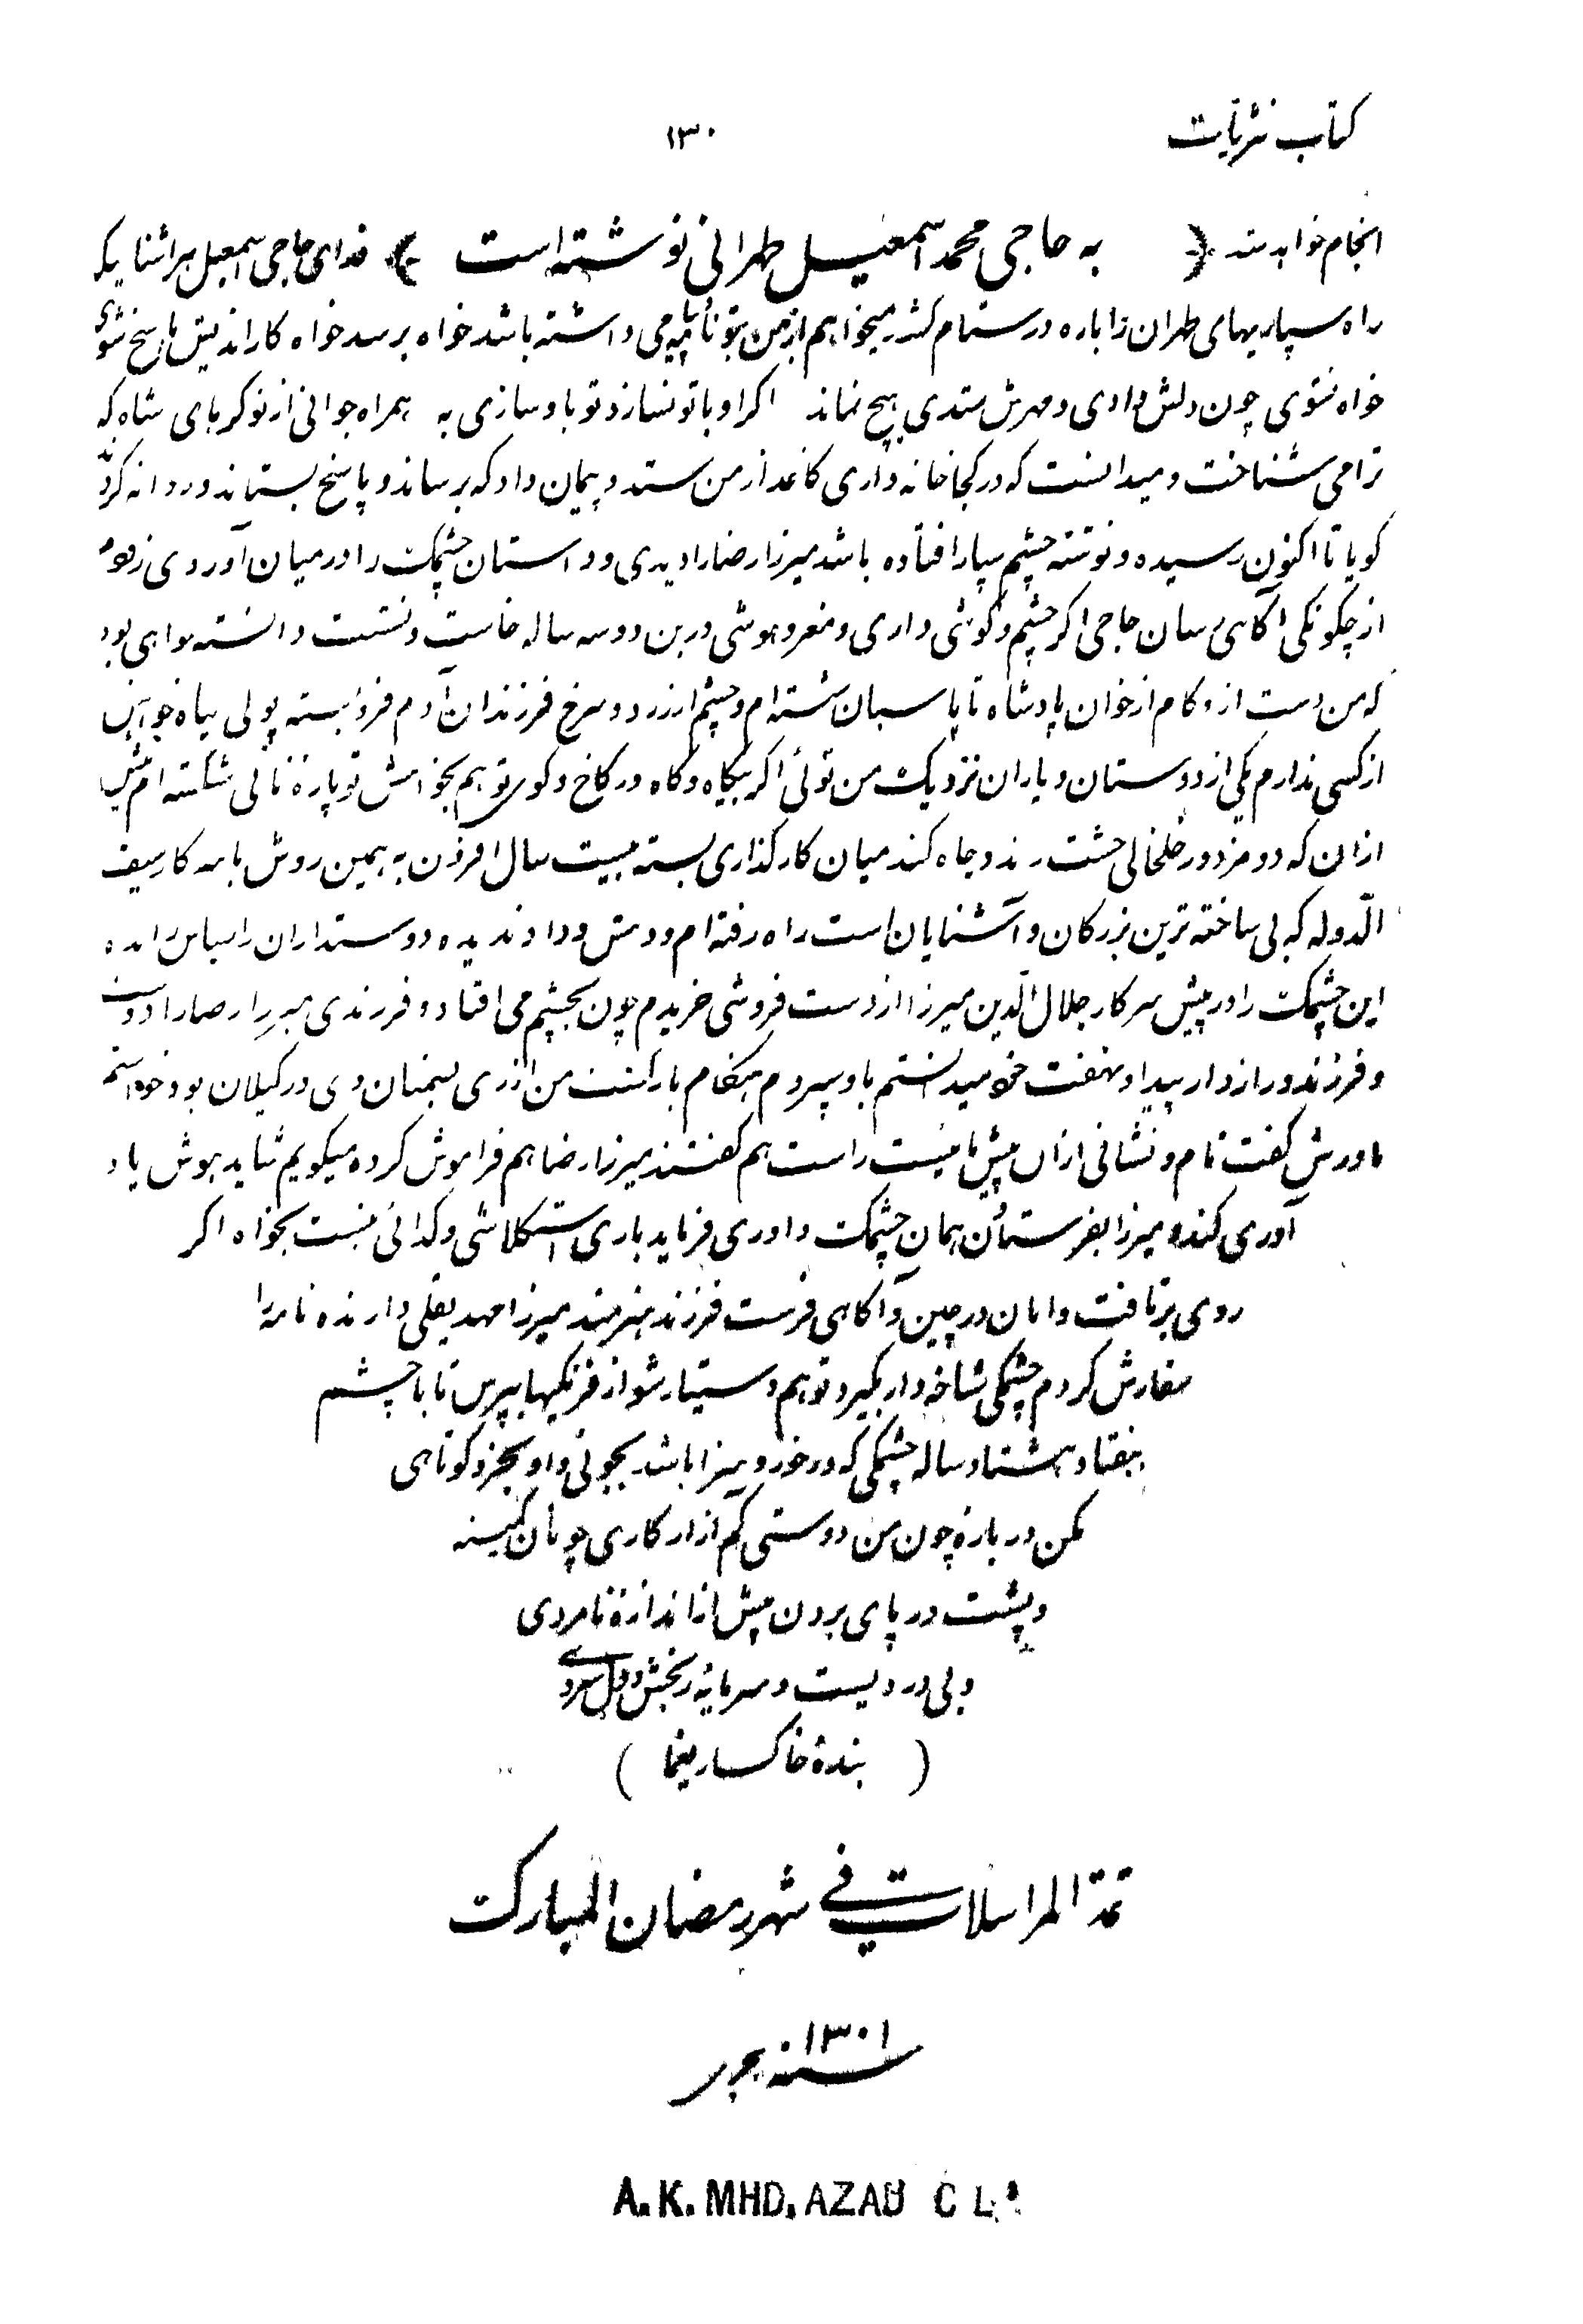 کتاب نثریات
۱۳۰
انجام خواهد شد ( به حاجی محمد اسمعیل طهرانی نوشته است ) فدای حاجی اسمعیل هر اشنا یکه
راه سپاریهای طهران را باره در ستام کشد میخواهم از من بتو تا پیامی داشته باشد خواه برسد خواه کار اندیش پاسخ شوی
خواه نشوی چون دلش دادی و مهرش ستدی هیچ نماند اکر او با تو نسازد تو با او سازی به همراه جوانی از نوکرهای شاه که
ترا می شناخت و میدانست که در کجا خانه داری کاغذ از من ستد و پیمان داد که برساند و پاسخ بستاند و روانه کرد
کویا تا اکنون رسیده و نوشته چشم سپار افتاده باشد میرزا رضا را دیدی و داستان چشمک را در میان آوردی
از چکونکی آکاهی سان حاجی اکر چشم و کوشی داری و مغز و هوشی درین دو سه ساله خاست و نشست دانسته خواهی بود
که من دست از و کام از خوان پادشاه تا پاسبان شسته ام و چشم از زرد و سرخ فرزندان آدم فرو بسته پولی سیاه خواهش
از کسی ندارم یکی از دوستان و یاران نزدیک من توئی اکر بیکاه و کاه در کاخ و کوی تو هم بخواهش تو پاره نانی شکسته ام بیش
ازان که دو مزدور خلخالی خشت زند و چاه کند میان کارکذاری بسته بیست سال افزون به همین روش با سرکار سیف
الدوله که بی ساخته ترین بزرکان و آشنایان است راه رفته ام و دستش و داد ندیده دوستداران را سپاس رانده
این چشمک را در پیش سرکار جلال الدین میرزا از دست فروشی خریدم چون بچشم می افتاد و فرزندی میرزا رضا را دوست
و فرزند و رازدار پیدا و نهفت خود میدانستم باو سپردم هنکام بازکشت من از ری بسمنان وی در کیلان بود خواستم
مادرش کفت نام و نشانی ازان پیش ما نیست راست هم کفتند میرزا رضا هم فراموش کرده میکویم شاید بهوش یاد
آوری کند و میرزا بفرستادن همان چشمک داوری فرماید باری اشتکلاشی و کدائی نیست بخواه اکر
روی برتافت دامان درچین و آکاهی فرست فرزند هنرمند میرزا مهدیقلی دارنده نامه را
سفارش کردم چشمکی شاخه دار بکیرد تو هم دستیار شو از فرنکیها بپرس تا با چشم
هفتاد هشتاد ساله چشمکی که درخور و سزا باشد بجوئی و او بخرد کوتاهی
مکن درباره چون من دوستی کم آزار کاری چونان کمینه
و پشت در پای بردن بیش از اندازه نامردی
و بی دردیست و سرمایه رنجش و دل سردی
( بنده خاکسار یغما )
تمة المراسلات فی شهر رمضان المبارک
۱۳۰۱
سنه هجری
A. K. MHD. AZAD